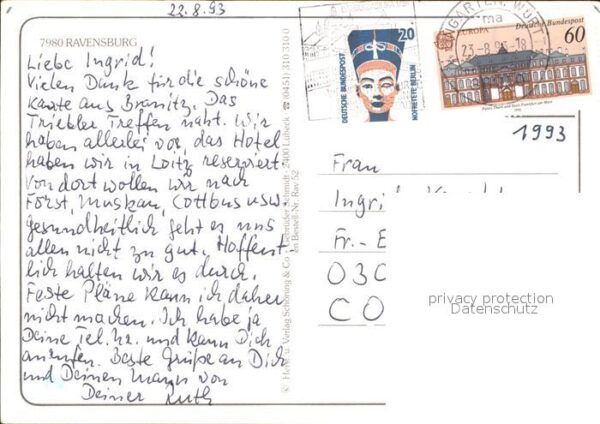 22.8.93
7980 RAVENSBURG
Liebe Ingrid!
Vielen Dank für die schöne
Karte aus Branitz. Das
Triebler Treffen naht. Wir
haben allerlei vor, das Hotel
haben wir in Loitz reserviert.
Von dort wollen wir nach
Forst, Muskau, Cottbus usw.
gesundheitlich geht es uns
allen nicht zu gut. Hoffent-
lich halten wir es durch.
Feste Pläne kann ich daher
nicht machen. Ich habe ja
Deine Tel. Nr. und kann Dich
anrufen. Beste Grüße an Dich
und Deinen Mann von
Deiner Ruth
© Herst. u. Verlag Schöning & Co + Gebrüder Schmidt · 2400 Lübeck · ☎ (0451) 310 310 0
Bestell-Nr. Rav 52
DEUTSCHE BUNDESPOST
20
NOFRETETE BERLIN
EUROPA
Deutsche Bundespost
60
GARTEN, WÜRTT
ma
23-8.93-18
1993
Frau
Ingrid
Fr.-E
030
CO
privacy protection
Datenschutz